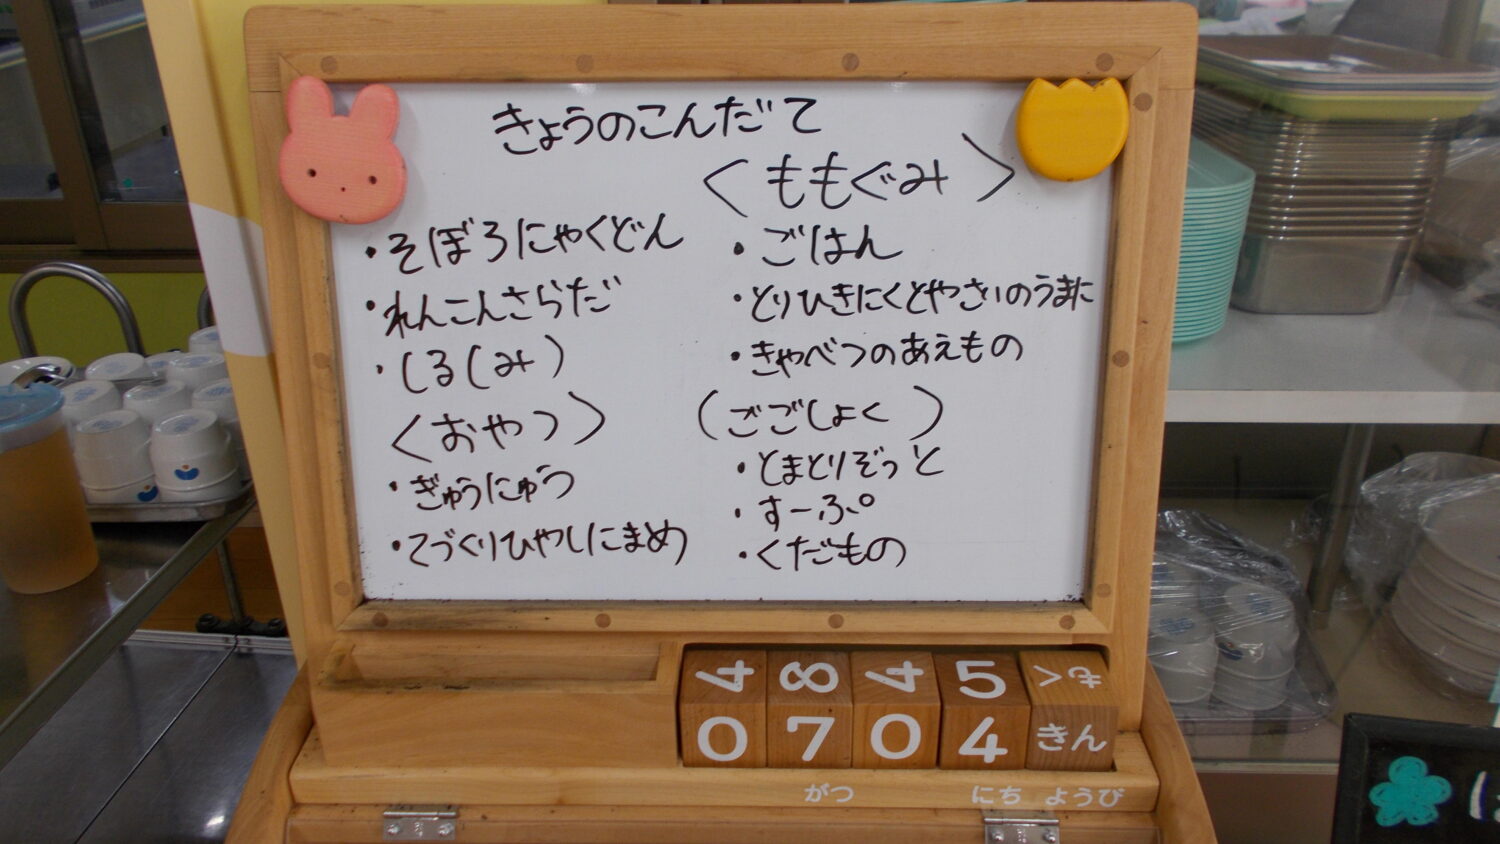 きょうのこんだて
・そぼろにゃくどん
・れんこんさらだ
・しるしみ)
<おやつ>
・ぎゅうにゅう
・てづくりひやしにまめ
<ももぐみ>
・ごはん
・とりひきにくとやさいのうまに
・きゃべつのあえもの
(ごごしょく)
・とまとりぞっと
・すーぷ
・くだもの
4 8 4 5
0 7 0 4 きん
がつ にち ようび